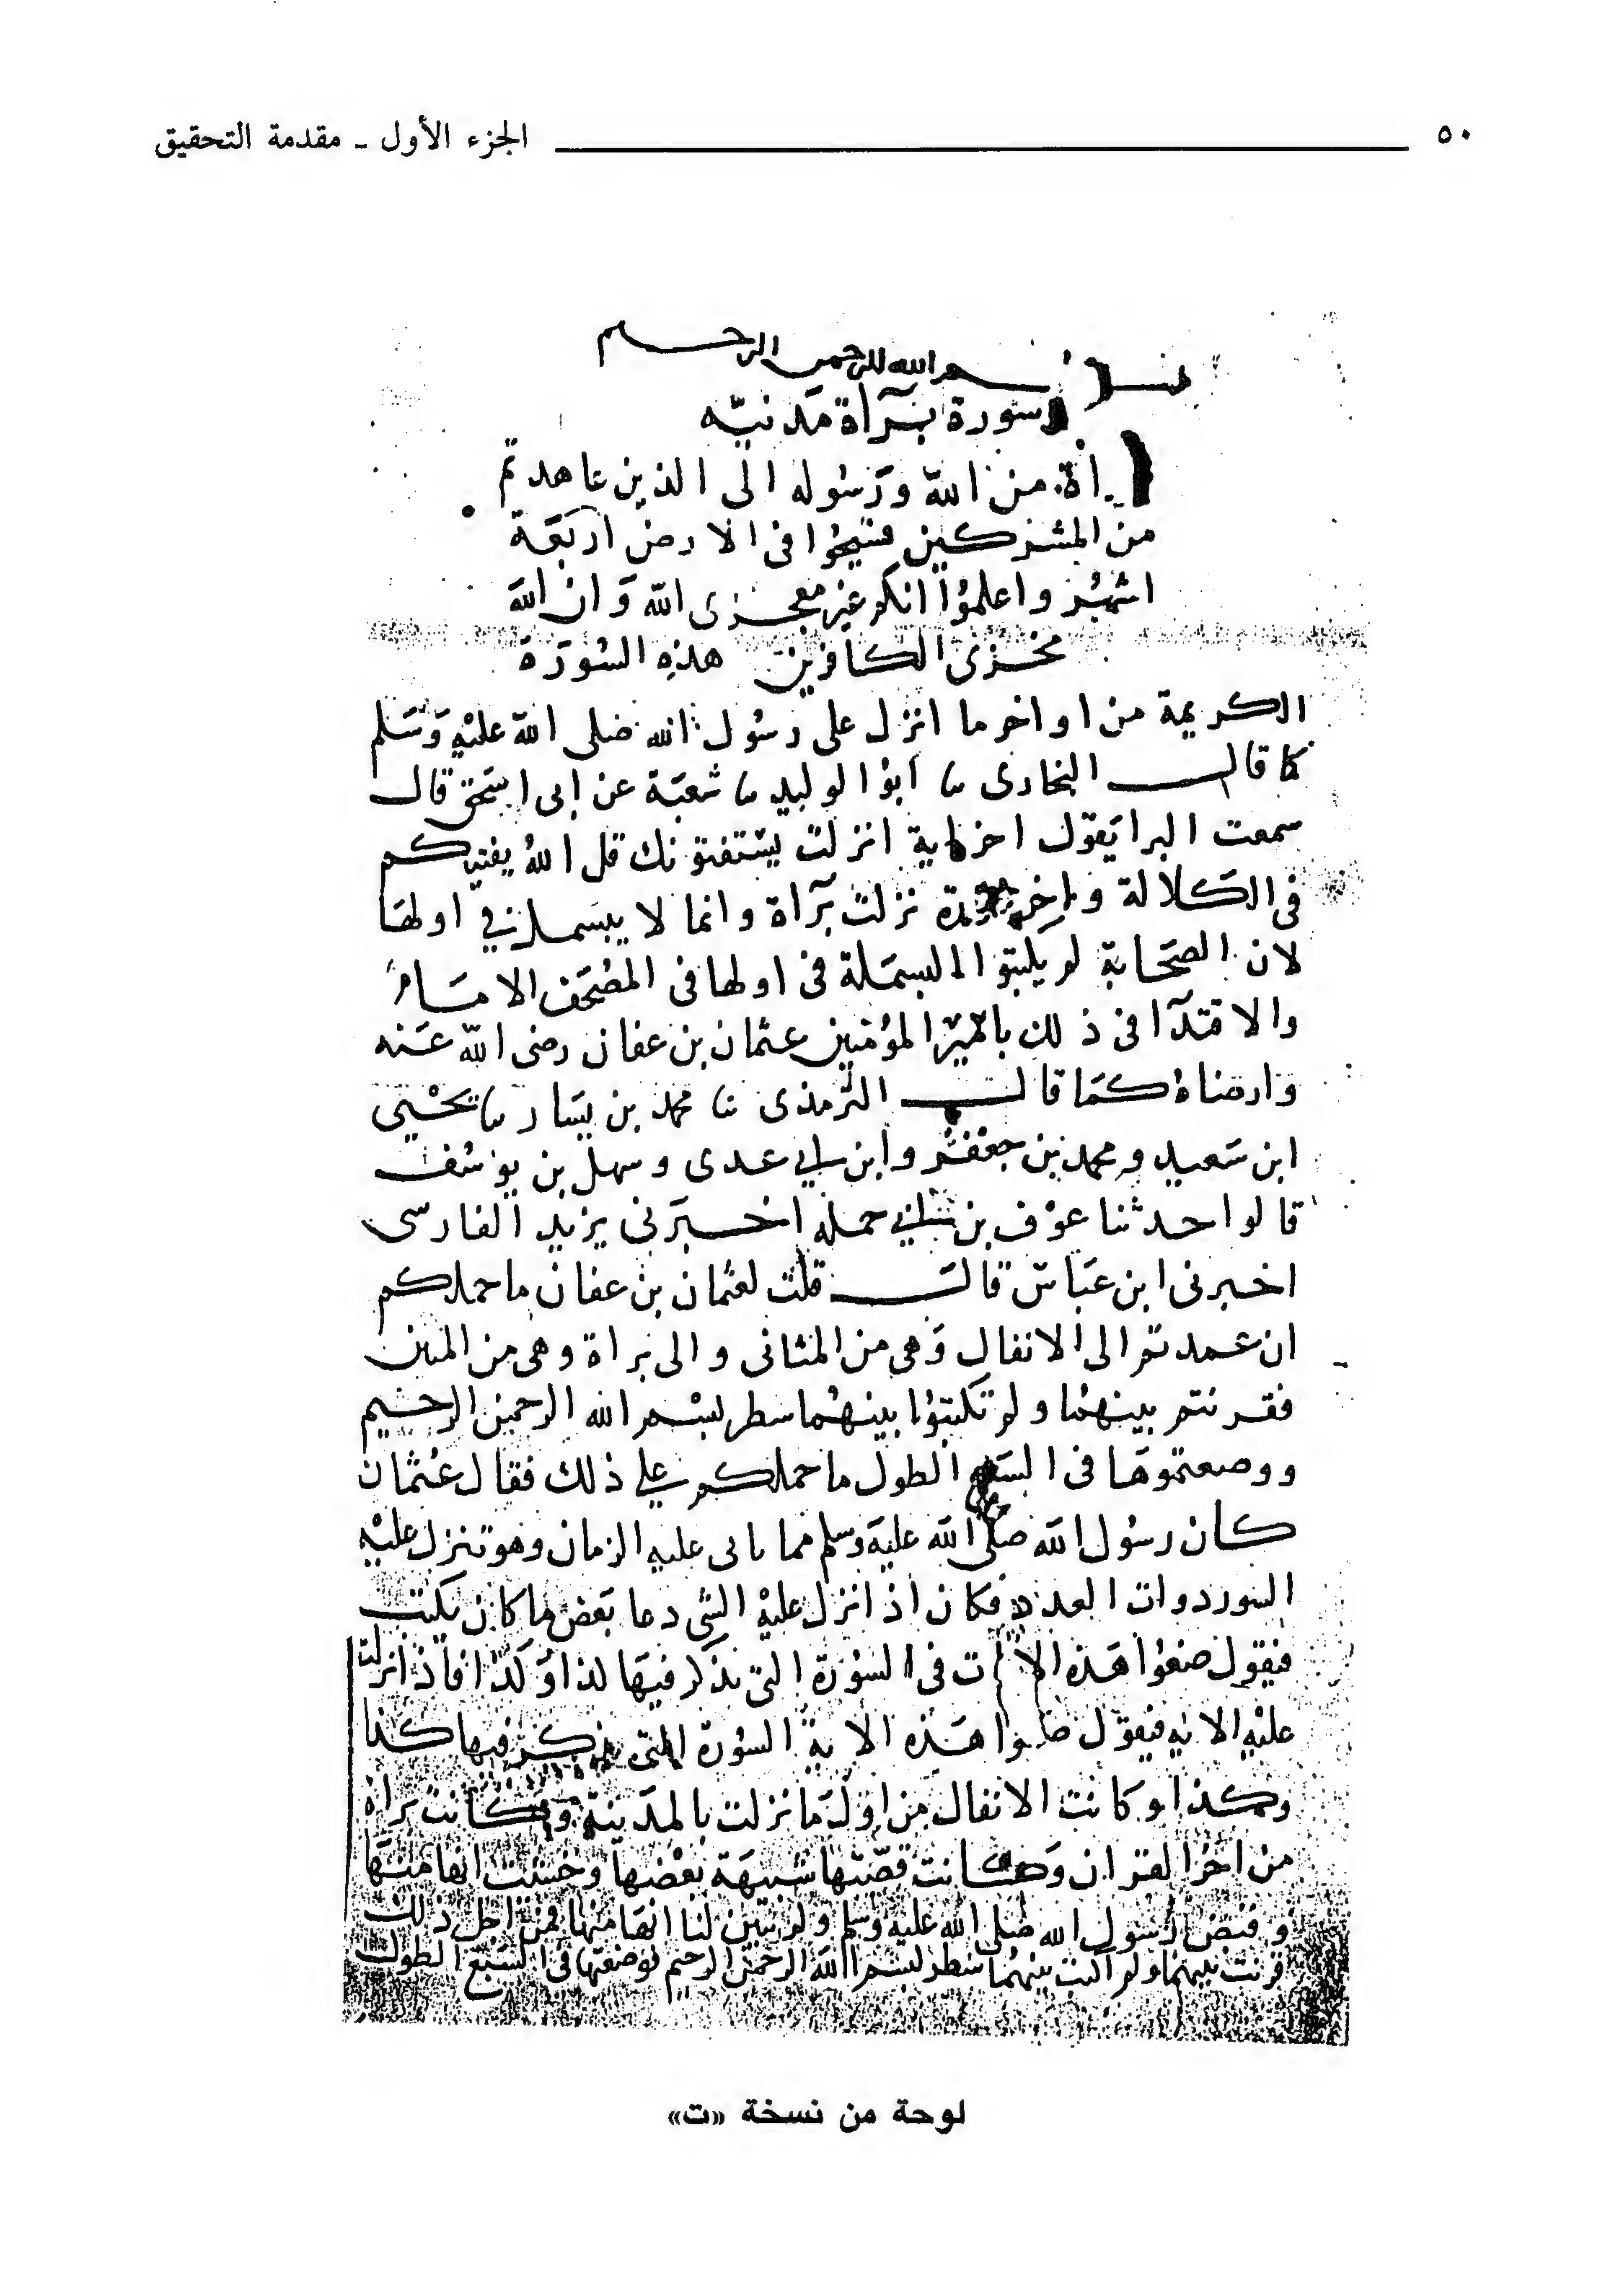 ٥٠ الجزء الأول ـ مقدمة التحقيق
بسم الله الرحمن الرحيم
سورة برآة مدنيه
برأة من الله ورسوله الى الذين عاهدتم
من المشركين فسيحوا فى الارض اربعة
اشهر واعلموا انكم غير معجزى الله وان الله
مخزى الكافرين هذه السورة
الكريمة من اواخر ما انزل على رسول الله صلى الله عليه وسلم
كما قال البخارى ثنا ابو الوليد ثنا شعبة عن ابى اسحق قال
سمعت البرا يقول اخر اية انزلت يستفتونك قل الله يفتيكم
فى الكلالة واخر سورة نزلت برآة وانما لا يبسمل فى اولها
لان الصحابة لم يكتبوا البسملة فى اولها فى المصحف الامام
والاقتدآ فى ذلك بامير المؤمنين عثمان بن عفان رضى الله عنه
وارضاه كما قال الترمذى ثنا محمد بن بشار ثنا يحيى
ابن سعيد ومحمد بن جعفر وابن ابي عدى وسهل بن يوسف
قالوا حدثنا عوف بن ابي جميله اخبرنى يزيد الفارسى
اخبرنى ابن عباس قال قلت لعثمان بن عفان ما حملكم
ان عمدتم الى الانفال وهى من المثانى والى براة وهى من المئين
فقرنتم بينهما ولم تكتبوا بينهما سطر بسم الله الرحمن الرحيم
ووضعتموها فى السبع الطول ما حملكم على ذلك فقال عثمان
كان رسول الله صلى الله عليه وسلم مما ياتى عليه الزمان وهو تنزل عليه
السور ذوات العدد فكان اذا نزل عليه الشى دعا بعض ما كان يكتب
فيقول ضعوا هذه الايات فى السورة التى يذكر فيها كذا وكذا فاذا نزلت
عليه الايه فيقول ضعوا هذه الاية السورة التى يذكر فيها كذا
وكذا وكانت الانفال من اول ما نزلت بالمدينة وكانت براة
من اخر القران وكانت قصتها شبيهة بقصتها وخشيت انها منها
وقبض رسول الله صلى الله عليه وسلم ولم يبين لنا انها منها فمن اجل ذلك
قرنت بينهما ولم اكتب بينهما سطر بسم الله الرحمن الرحيم ووضعتها فى السبع الطول
لوحة من نسخة «ت»